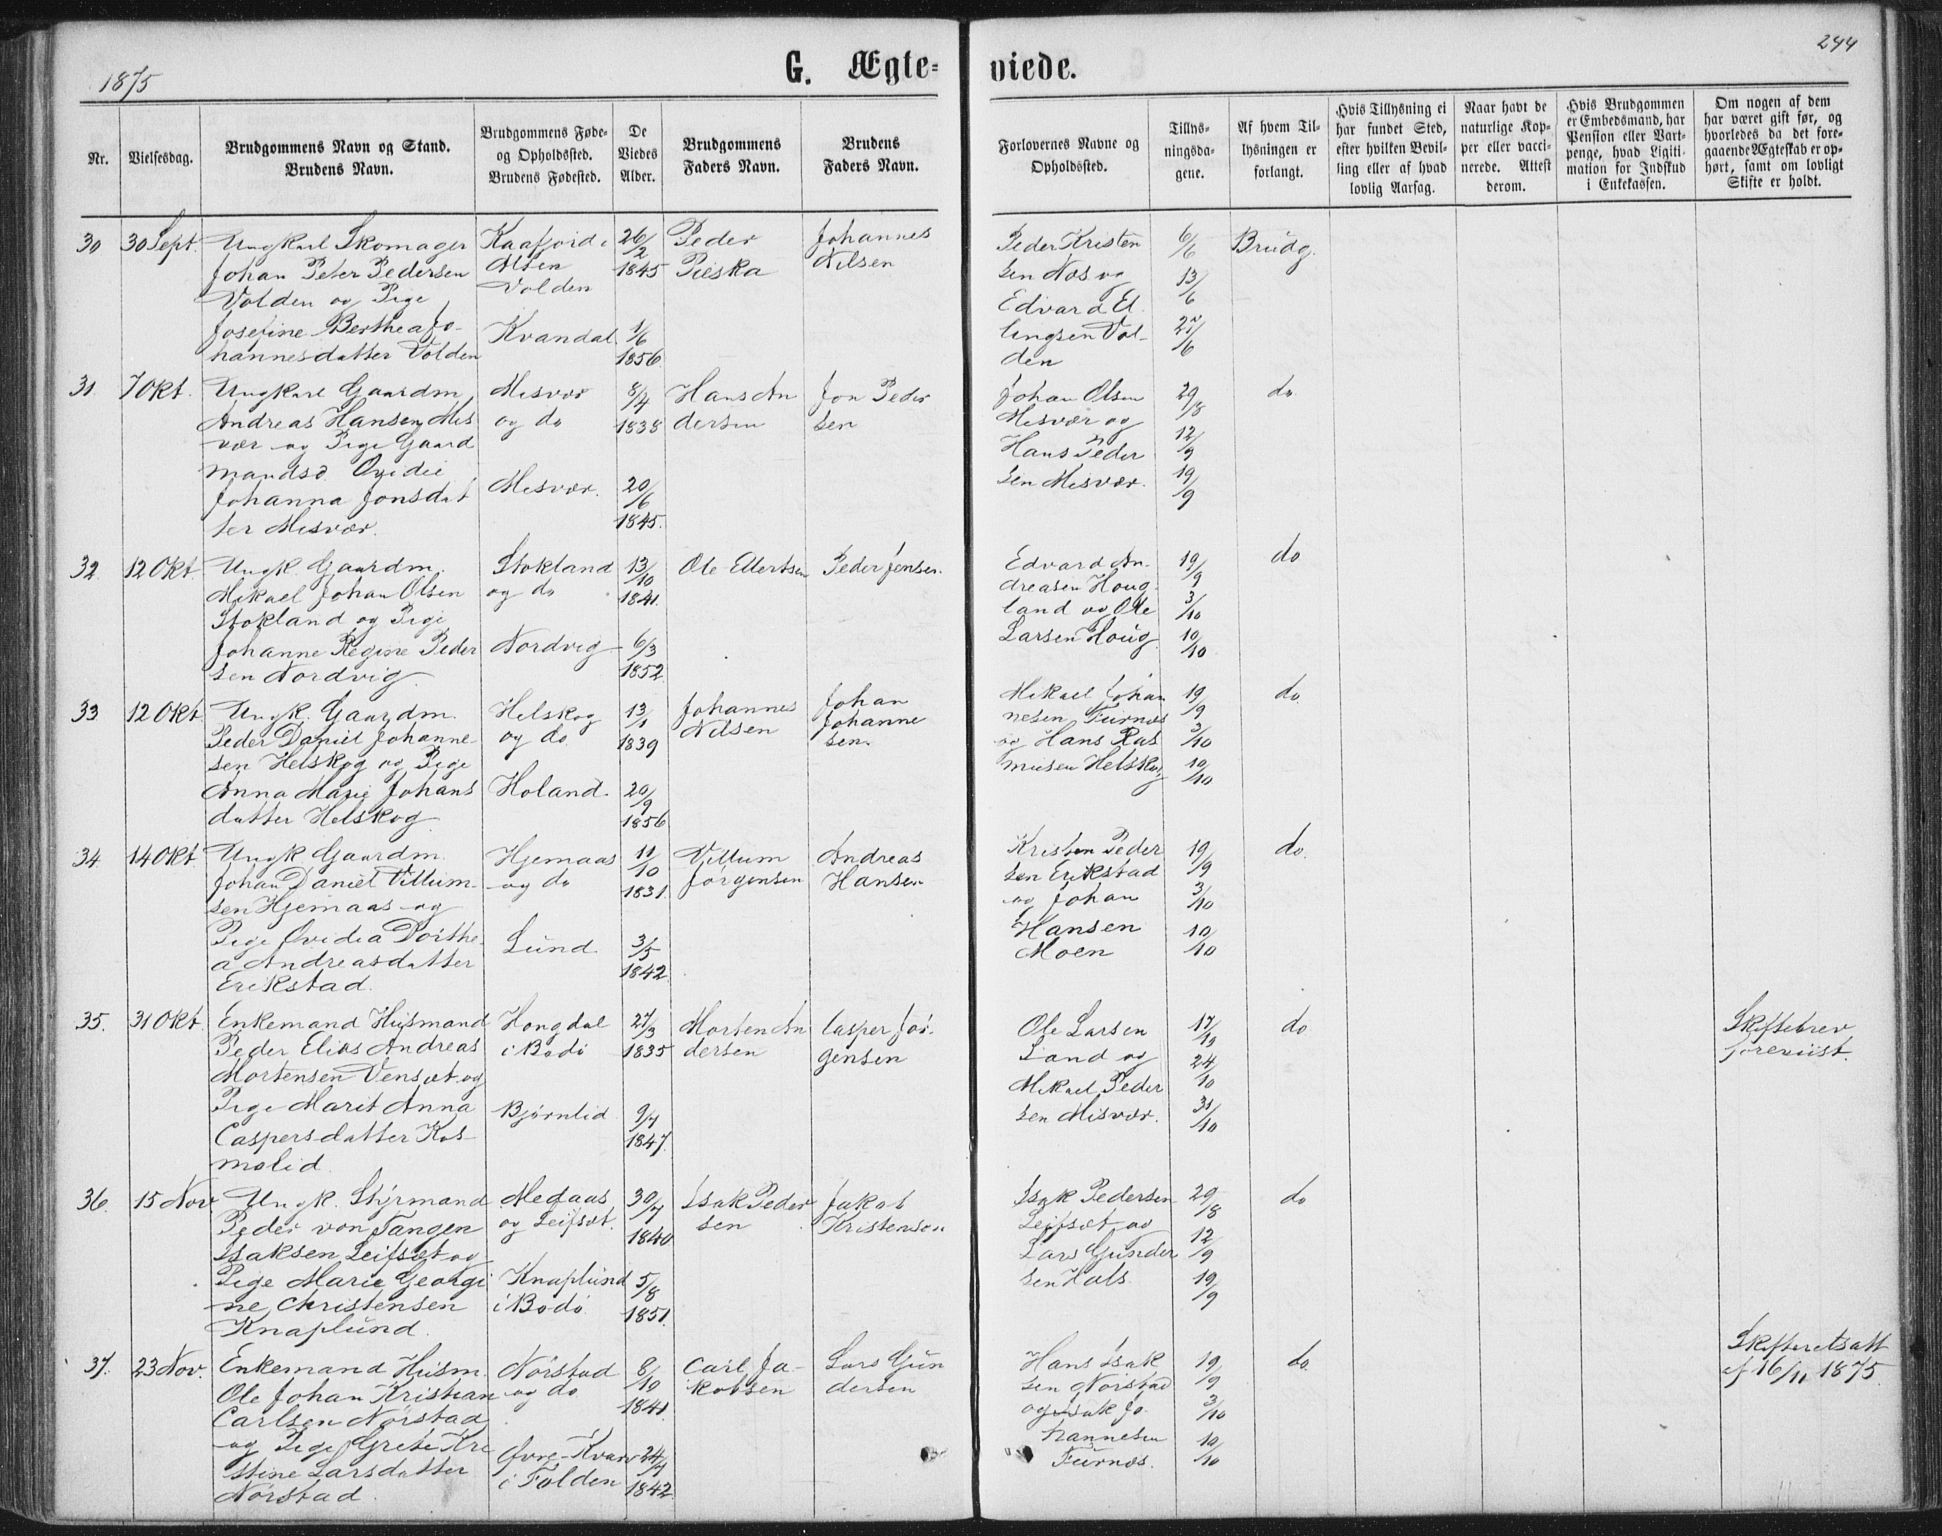 244
1875
G. Ægteviede.
Nr.
Vielsesdag.
Brudgommens Navn og Stand.
Brudens Navn.
Brudgommens Føde-
og Opholdssted.
Brudens Fødested.
De
Viedes
Alder.
Brudgommens
Faders Navn.
Brudens
Faders Navn.
Forlovernes Navne og
Opholdssted.
Tillys-
ningsda-
gene.
Af hvem Til-
lysningen er
forlangt.
Hvis Tillysning ei
har fundet Sted,
efter hvilken Bevil-
ling eller af hvad
lovlig Aarsag.
Naar havt de
naturlige Kop-
per eller vacci-
nerede. Attest
derom.
Hvis Brudgommen
er Embedsmand, har
Pension eller Vart-
penge, hvad Ligiti-
mation for Indskud
i Enkekassen.
Om nogen af dem
har været gift før, og
hvorledes da det fore-
gaaende Ægteskab er op-
hørt, samt om lovligt
Skifte er holdt.
30
30 Sept.
Ungkarl Skomager
Johan Peter Pedersen
Volden og Pige
Josefine Berthea Jo-
hannesdatter Volden
Kaafjord i
Alten
Volden
Kvandal
26/2
1845
1/6
1856
Peder
Pieska
Johannes
Nilsen
Peder Kristen
sen Næs og
Edvard El
lingsen Vol-
den
6/6
13/6
27/6
Brudg.
31
7 Okt.
Ungkarl Gaardm.
Andreas Hansen Mis
vær og Pige Gaard
mandsd. Ovidie
Johanna Jonsdat
ter Misvær.
Misvær
og do
Misvær.
8/4
1838
20/6
1845.
Hans An
dersen
Jon Peder
sen
Johan Olsen
Misvær og
Hans Peder
sen Misvær.
29/8
12/9
19/9
do
32
12 Okt.
Ungk. Gaardm.
Mikael Johan Olsen
Stokland og Pige
Johanne Regine Peder
sen Nordvig
Stokland
og do
Nordvig
13/10
1841.
6/3
1852
Ole Ellertsen
Peder Jensen.
Edvard An-
dreasen Houg-
land og Ole
Larsen Houg
19/9
3/10
10/10
do
33
12 Okt
Ungk. Gaardm.
Peder Daniel Johanne
sen Helskog og Pige
Anna Marie Johans
datter Helskog
Helskog
og do
Holand
13/1
1839
20/9
1856
Johannes
Nilsen
Johan
Johanne
sen.
Mikael Johan
nesen Furnæs
og Hans Ras
musen Helskog
19/9
3/10
10/10
do
34
14 Okt
Ungk Gaardm.
Johan Daniel Villum-
sen Hjemaas og
Pige Ovidia Dorthe-
a Andreasdatter
Erikstad.
Hjemaas
og do
Lund
11/10
1831
3/5
1842
Villum
Jørgensen
Andreas
Hansen
Kristen Peder
sen Erikstad
og Johan
Hansen
Moen
19/9
3/10
10/10
do
35.
31 Okt
Enkemand Husmand
Peder Elias Andreas
Mortensen Vensæt og
Pige Marit Anna
Caspersdatter Kos-
molid.
Hongdal
i Bodø
Bjørnlid
27/3
1835
9/7
1847.
Morten An
dersen
Casper Jør-
gensen
Ole Larsen
Land og
Mikael Peder
sen Misvær.
17/10
24/10
31/10
do
Skiftebrev
foreviist.
36.
15 Nov
Ungk. Styrmand
Peder von Tangen
Isaksen Leifsæt og
Pige Marie Georgi
ne Christensen
Knaplund.
Medaas
og Leifsæt.
Knaplund
i Bodø
30/7
1840
5/8
1851.
Isak Peder
sen
Jakob
Kristensen
Isak Pedersen
Leifsæt og
Lars Gunder
sen Hals
29/8
12/9
19/9
do
37.
23 Nov.
Enkemand Husm.
Ole Johan Kristian
Carlsen Nørstad
og Pige Grete Kri
stine Larsdatter
Nørstad.
Nørstad
og do
Øvre-Kvarv
i Folden
8/10
1841
24/4
1842
Carl Ja-
kobsen
Lars Gun
dersen
Hans Isak
sen Nørstad
og Isak Jo
hannesen
Furnæs.
19/9
3/10
10/10
do
Skifteretsatt
af 16/11 1875.